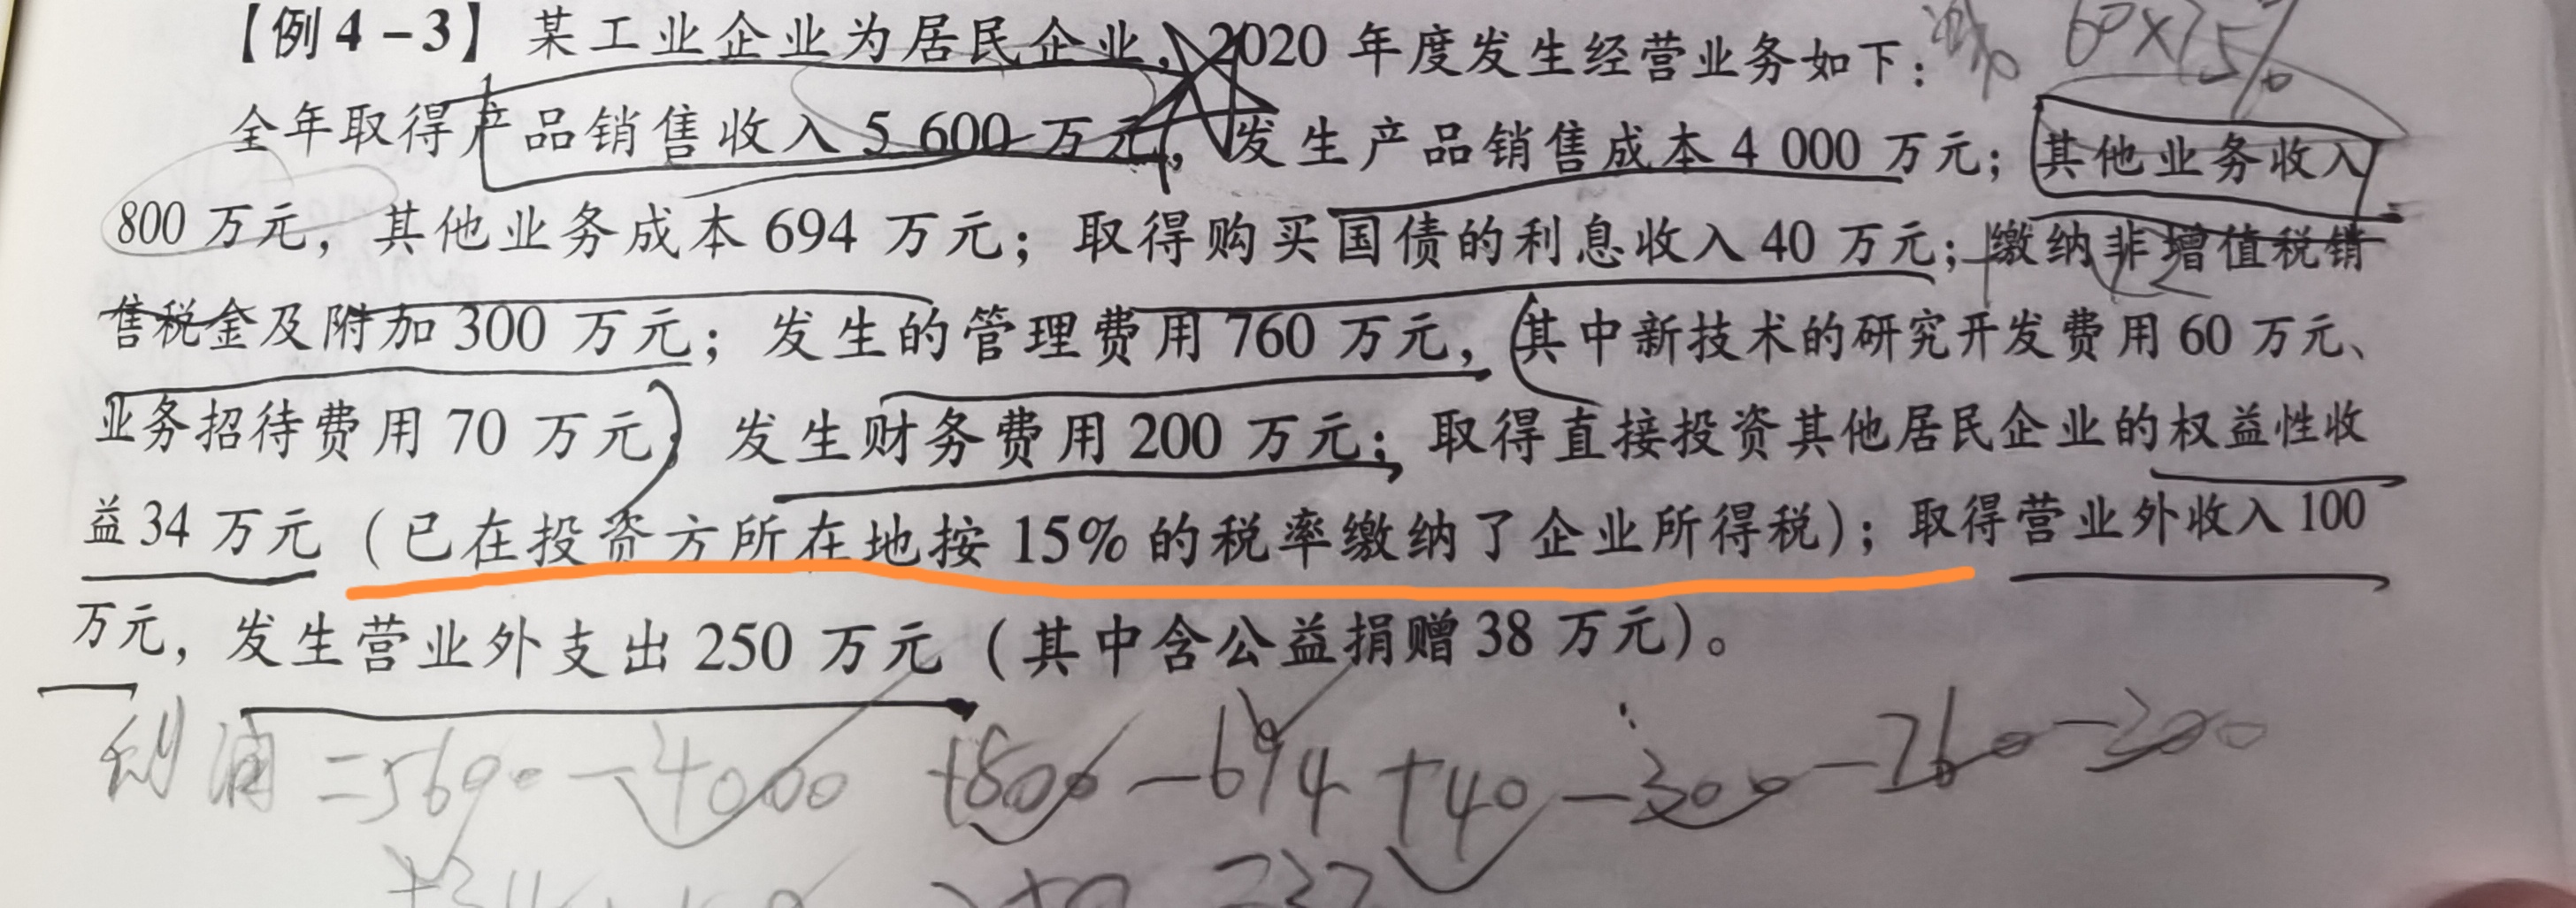 减 60×75%
【例4-3】某工业企业为居民企业，2020 年度发生经营业务如下：
全年取得产品销售收入 5 600 万元，发生产品销售成本 4 000 万元；其他业务收入
800 万元，其他业务成本 694 万元；取得购买国债的利息收入 40 万元；缴纳非增值税销
售税金及附加 300 万元；发生的管理费用 760 万元，其中新技术的研究开发费用 60 万元、
业务招待费用 70 万元；发生财务费用 200 万元；取得直接投资其他居民企业的权益性收
益 34 万元（已在投资方所在地按 15% 的税率缴纳了企业所得税）；取得营业外收入 100
万元，发生营业外支出 250 万元（其中含公益捐赠 38 万元）。
利润=5600-4000+800-694+40-300-760-200
+34